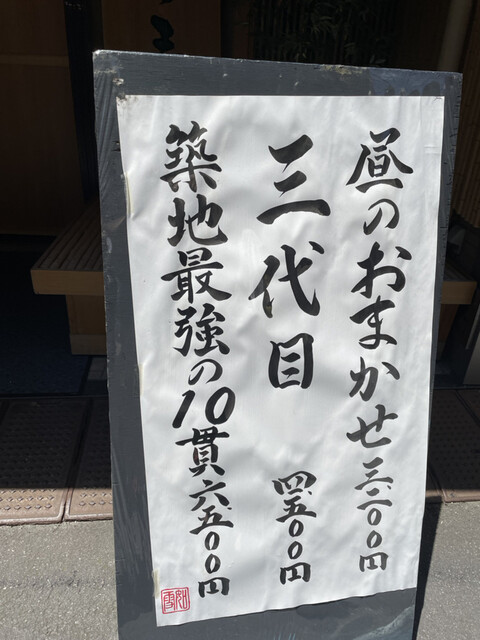 昼のおまかせ三、二〇〇円
三代目 四、五〇〇円
築地最強の10貫六、五〇〇円